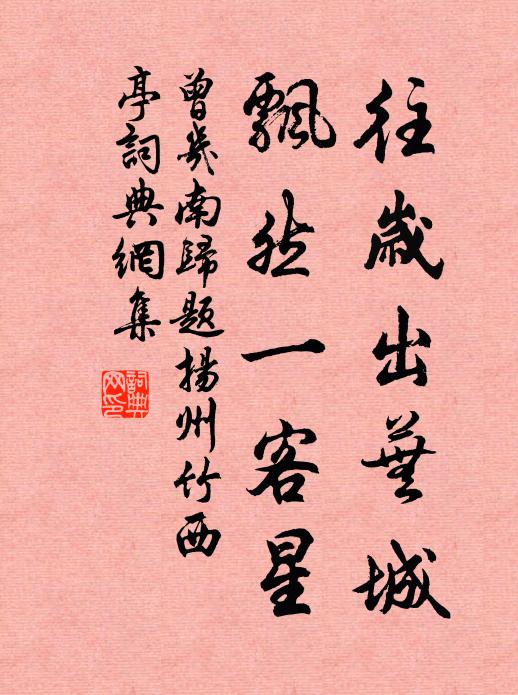 往歲出蕪城
飄然一客星
曾幾南歸題揚州竹西
亭詞典網集
詞典
网印